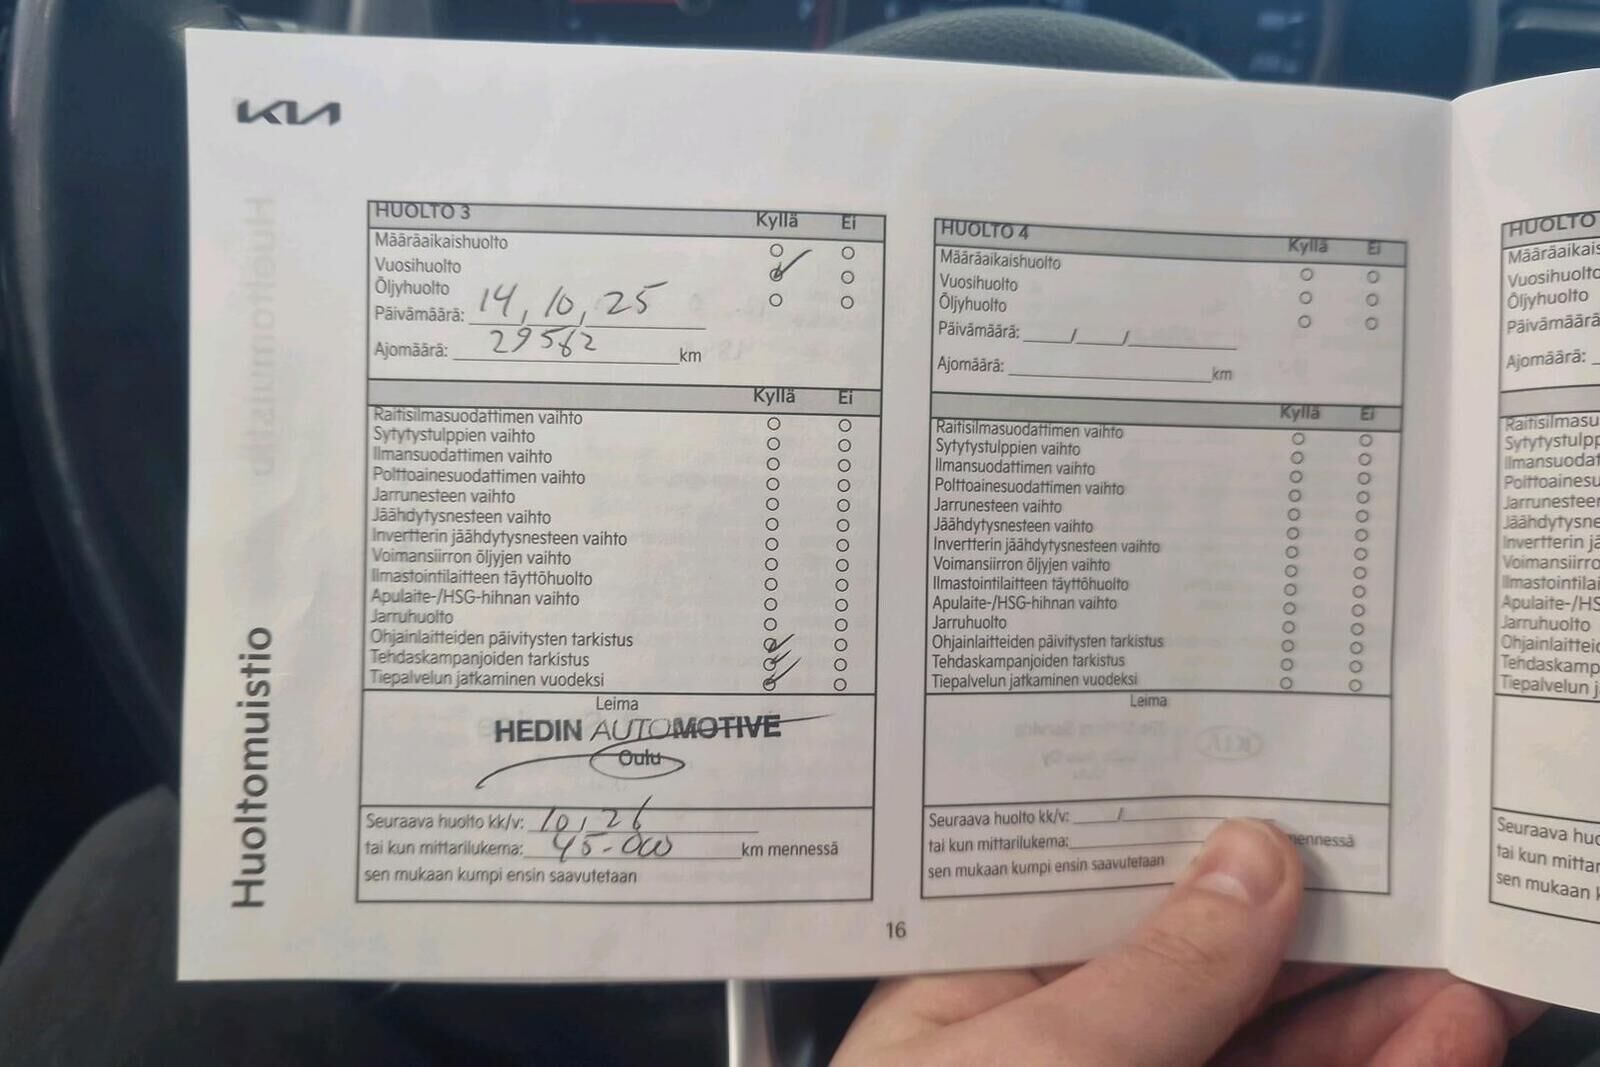 KIA
Huoltomuistio
HUOLTO 3 Kyllä Ei
Määräaikaishuolto
Vuosihuolto
Öljyhuolto
Päivämäärä: 14, 10, 25
Ajomäärä: 29582 km
Kyllä Ei
Raitisilmasuodattimen vaihto
Sytytystulppien vaihto
Ilmansuodattimen vaihto
Polttoainesuodattimen vaihto
Jarrunesteen vaihto
Jäähdytysnesteen vaihto
Invertterin jäähdytysnesteen vaihto
Voimansiirron öljyjen vaihto
Ilmastointilaitteen täyttöhuolto
Apulaite-/HSG-hihnan vaihto
Jarruhuolto
Ohjainlaitteiden päivitysten tarkistus
Tehdaskampanjoiden tarkistus
Tiepalvelun jatkaminen vuodeksi
Leima
HEDIN AUTOMOTIVE
Oulu
Seuraava huolto kk/v: 10, 26
tai kun mittarilukema: 45-000 km mennessä
sen mukaan kumpi ensin saavutetaan
HUOLTO 4 Kyllä Ei
Määräaikaishuolto
Vuosihuolto
Öljyhuolto
Päivämäärä: / /
Ajomäärä: km
Kyllä Ei
Raitisilmasuodattimen vaihto
Sytytystulppien vaihto
Ilmansuodattimen vaihto
Polttoainesuodattimen vaihto
Jarrunesteen vaihto
Jäähdytysnesteen vaihto
Invertterin jäähdytysnesteen vaihto
Voimansiirron öljyjen vaihto
Ilmastointilaitteen täyttöhuolto
Apulaite-/HSG-hihnan vaihto
Jarruhuolto
Ohjainlaitteiden päivitysten tarkistus
Tehdaskampanjoiden tarkistus
Tiepalvelun jatkaminen vuodeksi
Leima
Seuraava huolto kk/v: /
tai kun mittarilukema: mennessä
sen mukaan kumpi ensin saavutetaan
16
HUOLTO
Määräaikais
Vuosihuolto
Öljyhuolto
Päivämäärä
Ajomäärä:
Raitisilmasu
Sytytystulpp
Ilmansuodat
Polttoainesu
Jarrunesteer
Jäähdytysne
Invertterin jä
Voimansiirro
Ilmastointilai
Apulaite-/HS
Jarruhuolto
Ohjainlaittei
Tehdaskamp
Tiepalvelun j
Seuraava huo
tai kun mittar
sen mukaan k